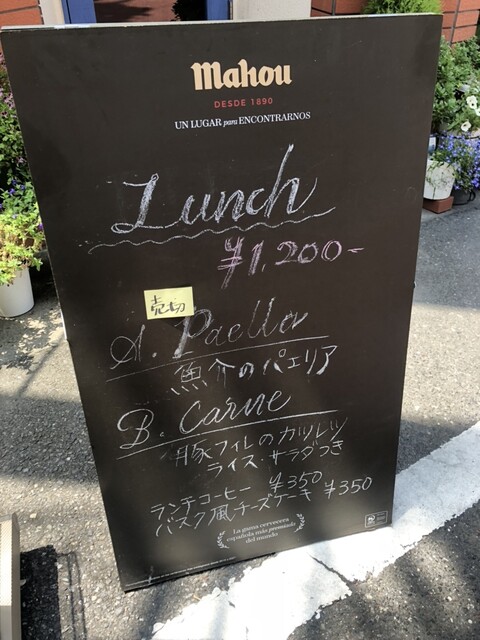 Mahou
DESDE 1890
UN LUGAR para ENCONTRARNOS
Lunch
¥1,200-
売切
A. Paella
魚介のパエリア
B. Carne
豚フィレのカツレツ
ライス・サラダつき
ランチコーヒー ¥350
バスク風チーズケーキ ¥350
La gama cervecera
española más premiada
del mundo